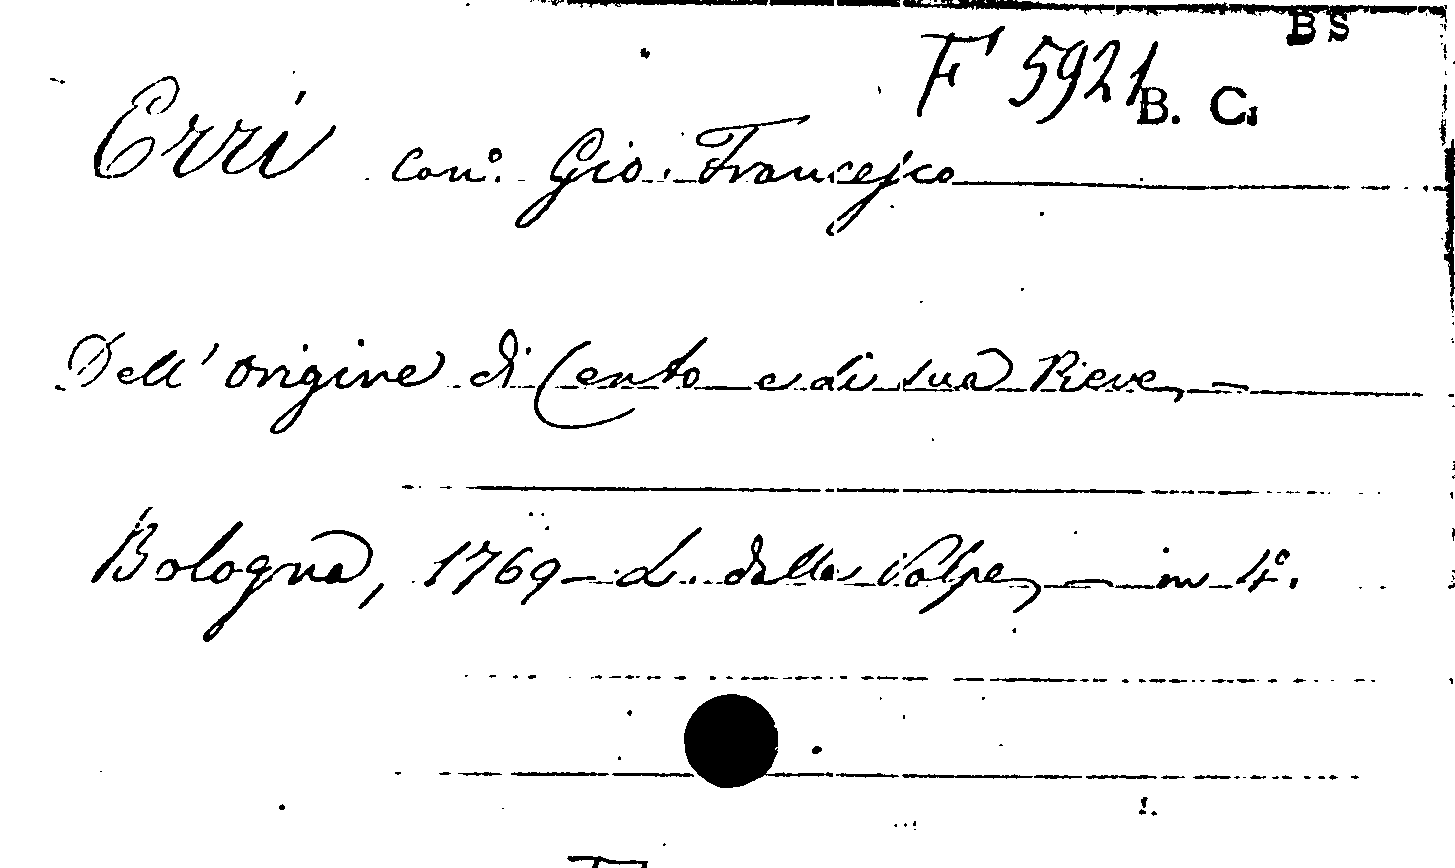 BS
F 5921 B. C.
Erri Con.º Gio. Francesco
Dell' origine di Cento e di sua Pieve, —
Bologna, 1769 – L. dalla Volpe, — in 4º.